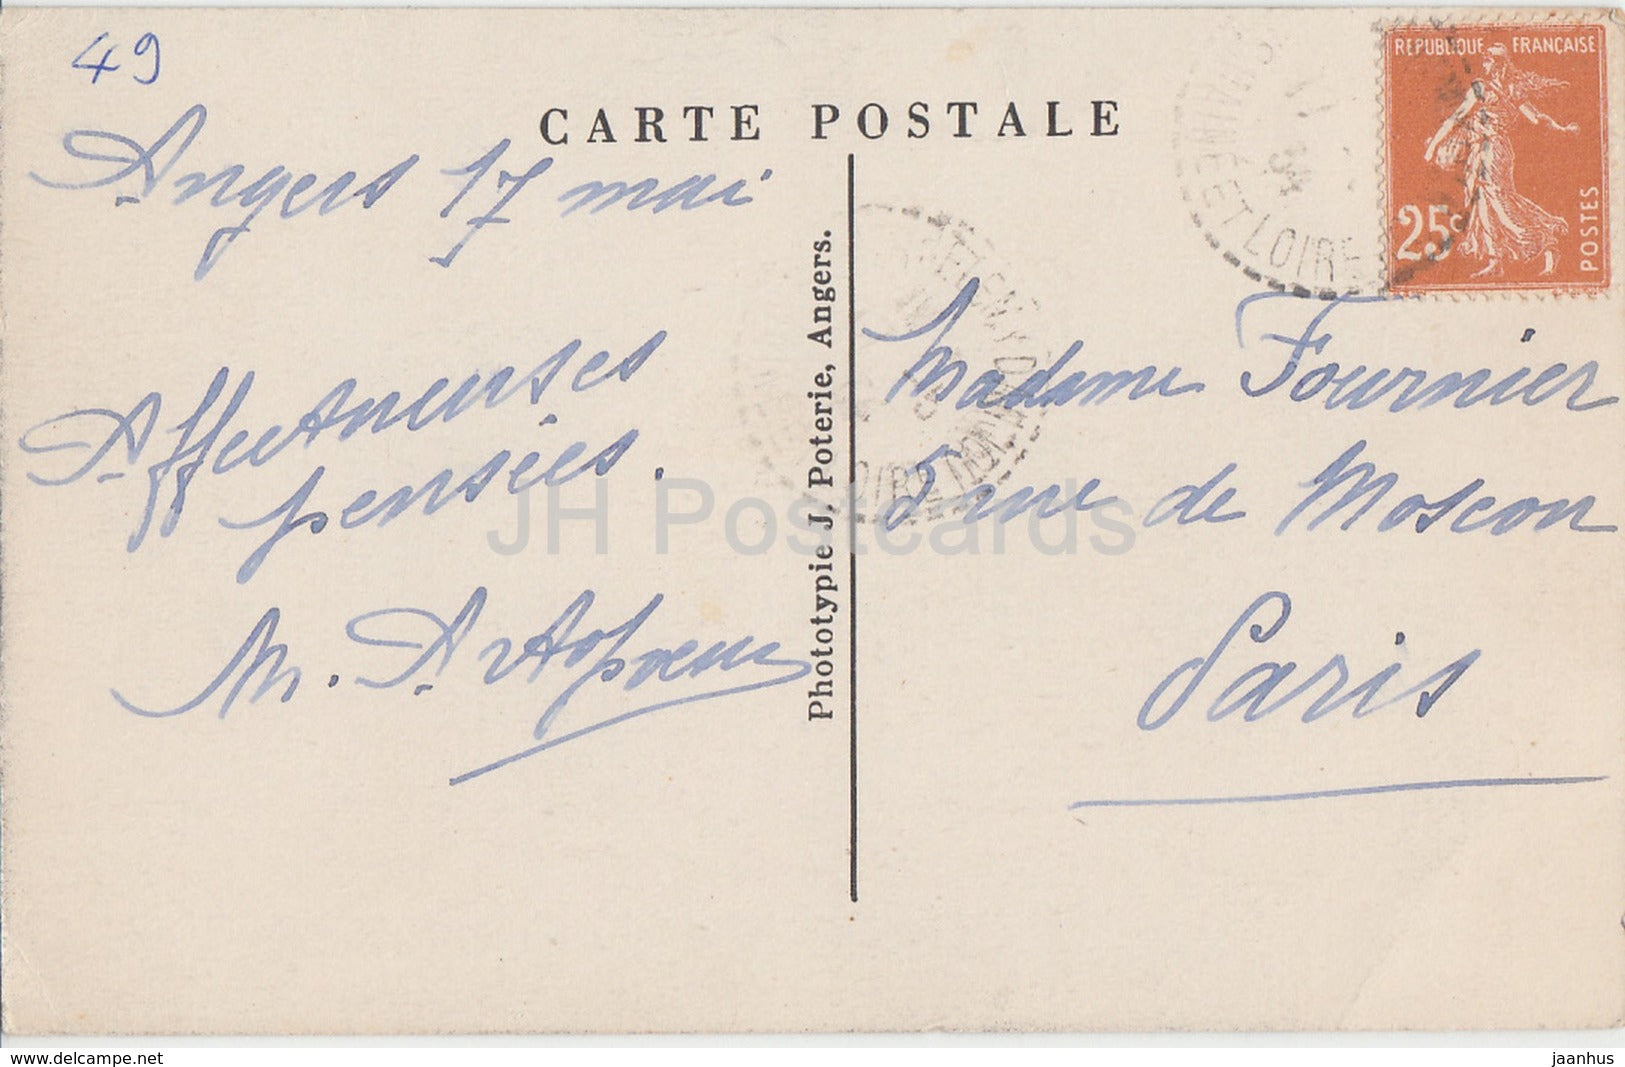 49
CARTE POSTALE
REPUBLIQUE FRANÇAISE
25c
POSTES
ET LOIRE
Angers 17 mai
Affectueuses
pensées.
M.
Madame Fournier
5 rue de Moscou
Paris
Phototypie J. Poterie, Angers.
JH Postcards
delcampe.net
jaanhus